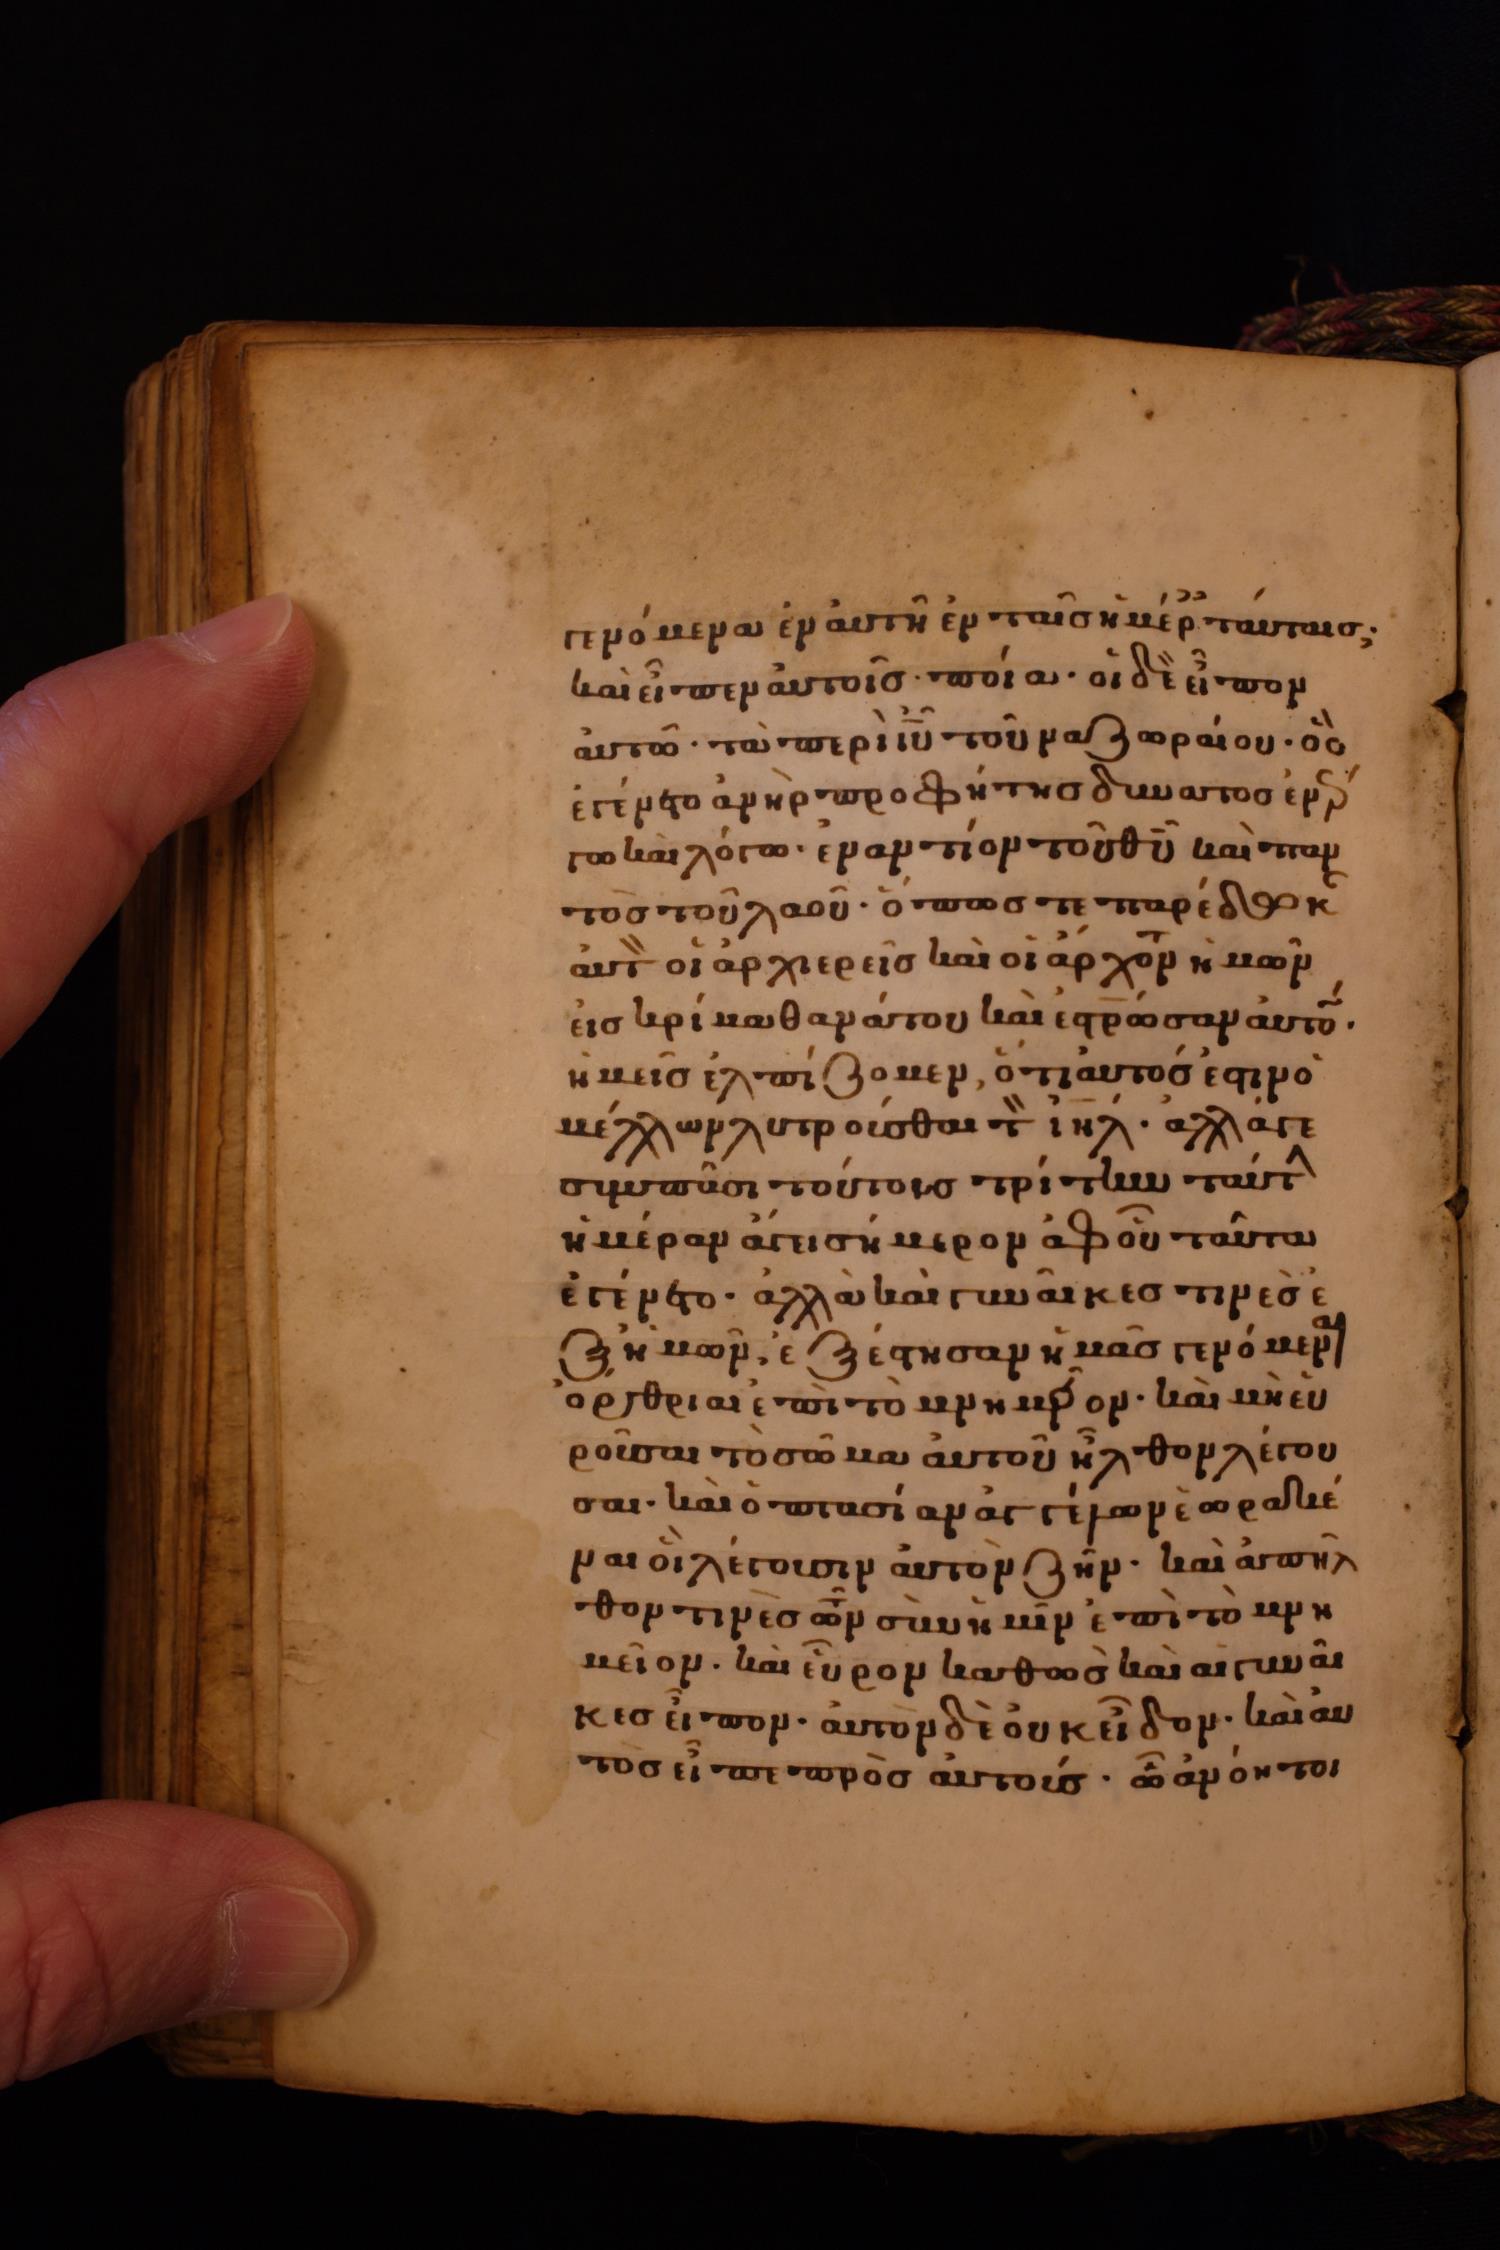 γενόμενα ἐν αὐτῆ ἐν ταῖς ἡμέρ ταύταις;
καὶ εἶπεν αὐτοῖς· ποία· οἱ δὲ εἶπον
αὐτῶ· τὰ περὶ ιῦ τοῦ ναζωραίου· ὃς
ἐγένετο ἀνὴρ προφήτης δυνατος ἐν ἔρ
γω καὶ λόγω· ἐναντίον τοῦ θῦ καὶ παν
τὸς τοῦ λαοῦ· ὅπως τε παρέδωκ
αὐτ οἱ ἀρχιερεῖς καὶ οἱ ἄρχοντ ἡμῶν
εἰς κρίμα θανάτου καὶ ἐστρωσαν αὐτο·
ἡμεῖς ἐλπίζομεν, ὅτι αὐτός ἐστιν ὁ
μέλλων λυτροῦσθαι τ ιηλ· ἀλλάγε
σὺν πᾶσι τούτοις τρίτην ταύτ
ἡμέραν ἄγει σήμερον ἀφ οὗ ταῦτα
ἐγένετο· ἀλλὰ καὶ γυναῖκες τινὲς ἐ
ξ ἡμῶν, ἐξέστησαν ἡμᾶς γενόμεναι
ὄρθριαι ἐπὶ τὸ μνημεῖον· καὶ μὴ εὑ
ροῦσαι τὸ σῶμα αὐτοῦ ἦλθον λέγου
σαι· καὶ ὀπτασίαν ἀγγέλων ἑωρακέ
ναι οἳ λέγουσιν αὐτὸν ζῆν· καὶ ἀπῆλ
θον τινὲς τῶν σὺν ἡμῖν ἐπὶ τὸ μνη
μεῖον· καὶ εὗρον καθὼς καὶ αἱ γυναῖ
κες εἶπον· αὐτὸν δὲ οὐκ εἶδον· καὶ αὐ
τὸς εἶπε πρὸς αὐτούς· ὦ ἀνόητοι